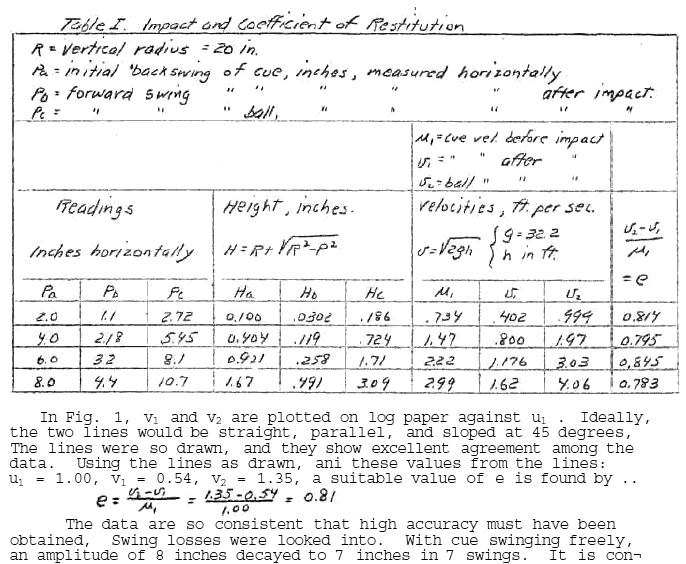 Table I. Impact and Coefficient of Restitution
R = Vertical radius = 20 in.
Pa = initial backswing of cue, inches, measured horizontally
Pb = forward swing " " " " " after impact.
Pc = " " " ball, " " " " "
μ₁ = cue vel. before impact
υ₁ = " " after "
υ₂ = ball " " "
Readings Height, inches. Velocities, ft. per sec.
Inches horizontally H = R + √R²-P² υ = √2gh { g = 32.2 h in ft. υ₂-υ₁ / μ₁ = e
Pa Pb Pc Ha Hb Hc μ₁ υ₁ υ₂
2.0 1.1 2.72 0.100 .0302 .186 .734 .402 .999 0.814
4.0 2.18 5.45 0.404 .119 .724 1.47 .800 1.97 0.795
6.0 3.2 8.1 0.921 .258 1.71 2.22 1.176 3.03 0.845
8.0 4.4 10.7 1.67 .491 3.09 2.99 1.62 4.06 0.783
In Fig. 1, v₁ and v₂ are plotted on log paper against u₁ . Ideally,
the two lines would be straight, parallel, and sloped at 45 degrees,
The lines were so drawn, and they show excellent agreement among the
data. Using the lines as drawn, ani these values from the lines:
u₁ = 1.00, v₁ = 0.54, v₂ = 1.35, a suitable value of e is found by ..
e = υ₂-υ₁ / μ₁ = 1.35-0.54 / 1.00 = 0.81
The data are so consistent that high accuracy must have been
obtained, Swing losses were looked into. With cue swinging freely,
an amplitude of 8 inches decayed to 7 inches in 7 swings. It is con¬